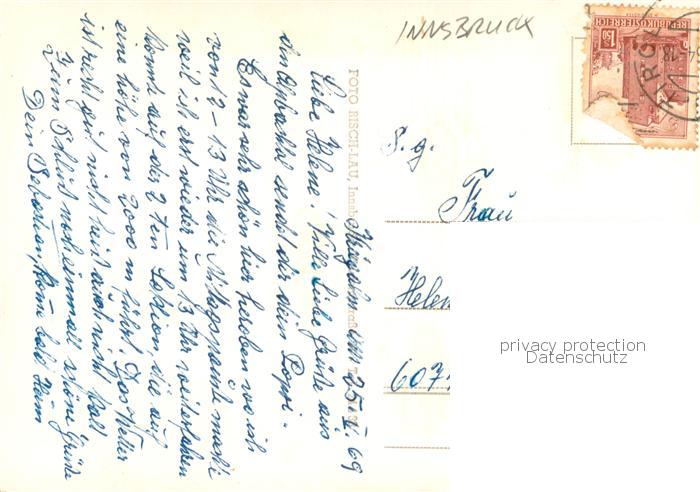 INNSBRUCK
REPUBLIK ÖSTERREICH
1.50
FOTO RISCH-LAU, Innsb
am 25. 69
Liebe Helene! Viele liebe Grüße aus
dem Alpbachtal sendet dir dein
Es war sehr schön hier heroben wo ich
von 12 - 13 Uhr die Mittagspause machte
weil ich erst wieder um 13 Uhr weiterfahren
konnte auf die 2te Sektion, die auf
eine höhe von 2000 m führt. Das Wetter
ist nicht gut nicht heiß auch nicht kalt
Zum Schluß noch einmal schöne Grüße
Dein Sebastian, komme bald Heim
S. g.
Frau
Helen
607
privacy protection
Datenschutz